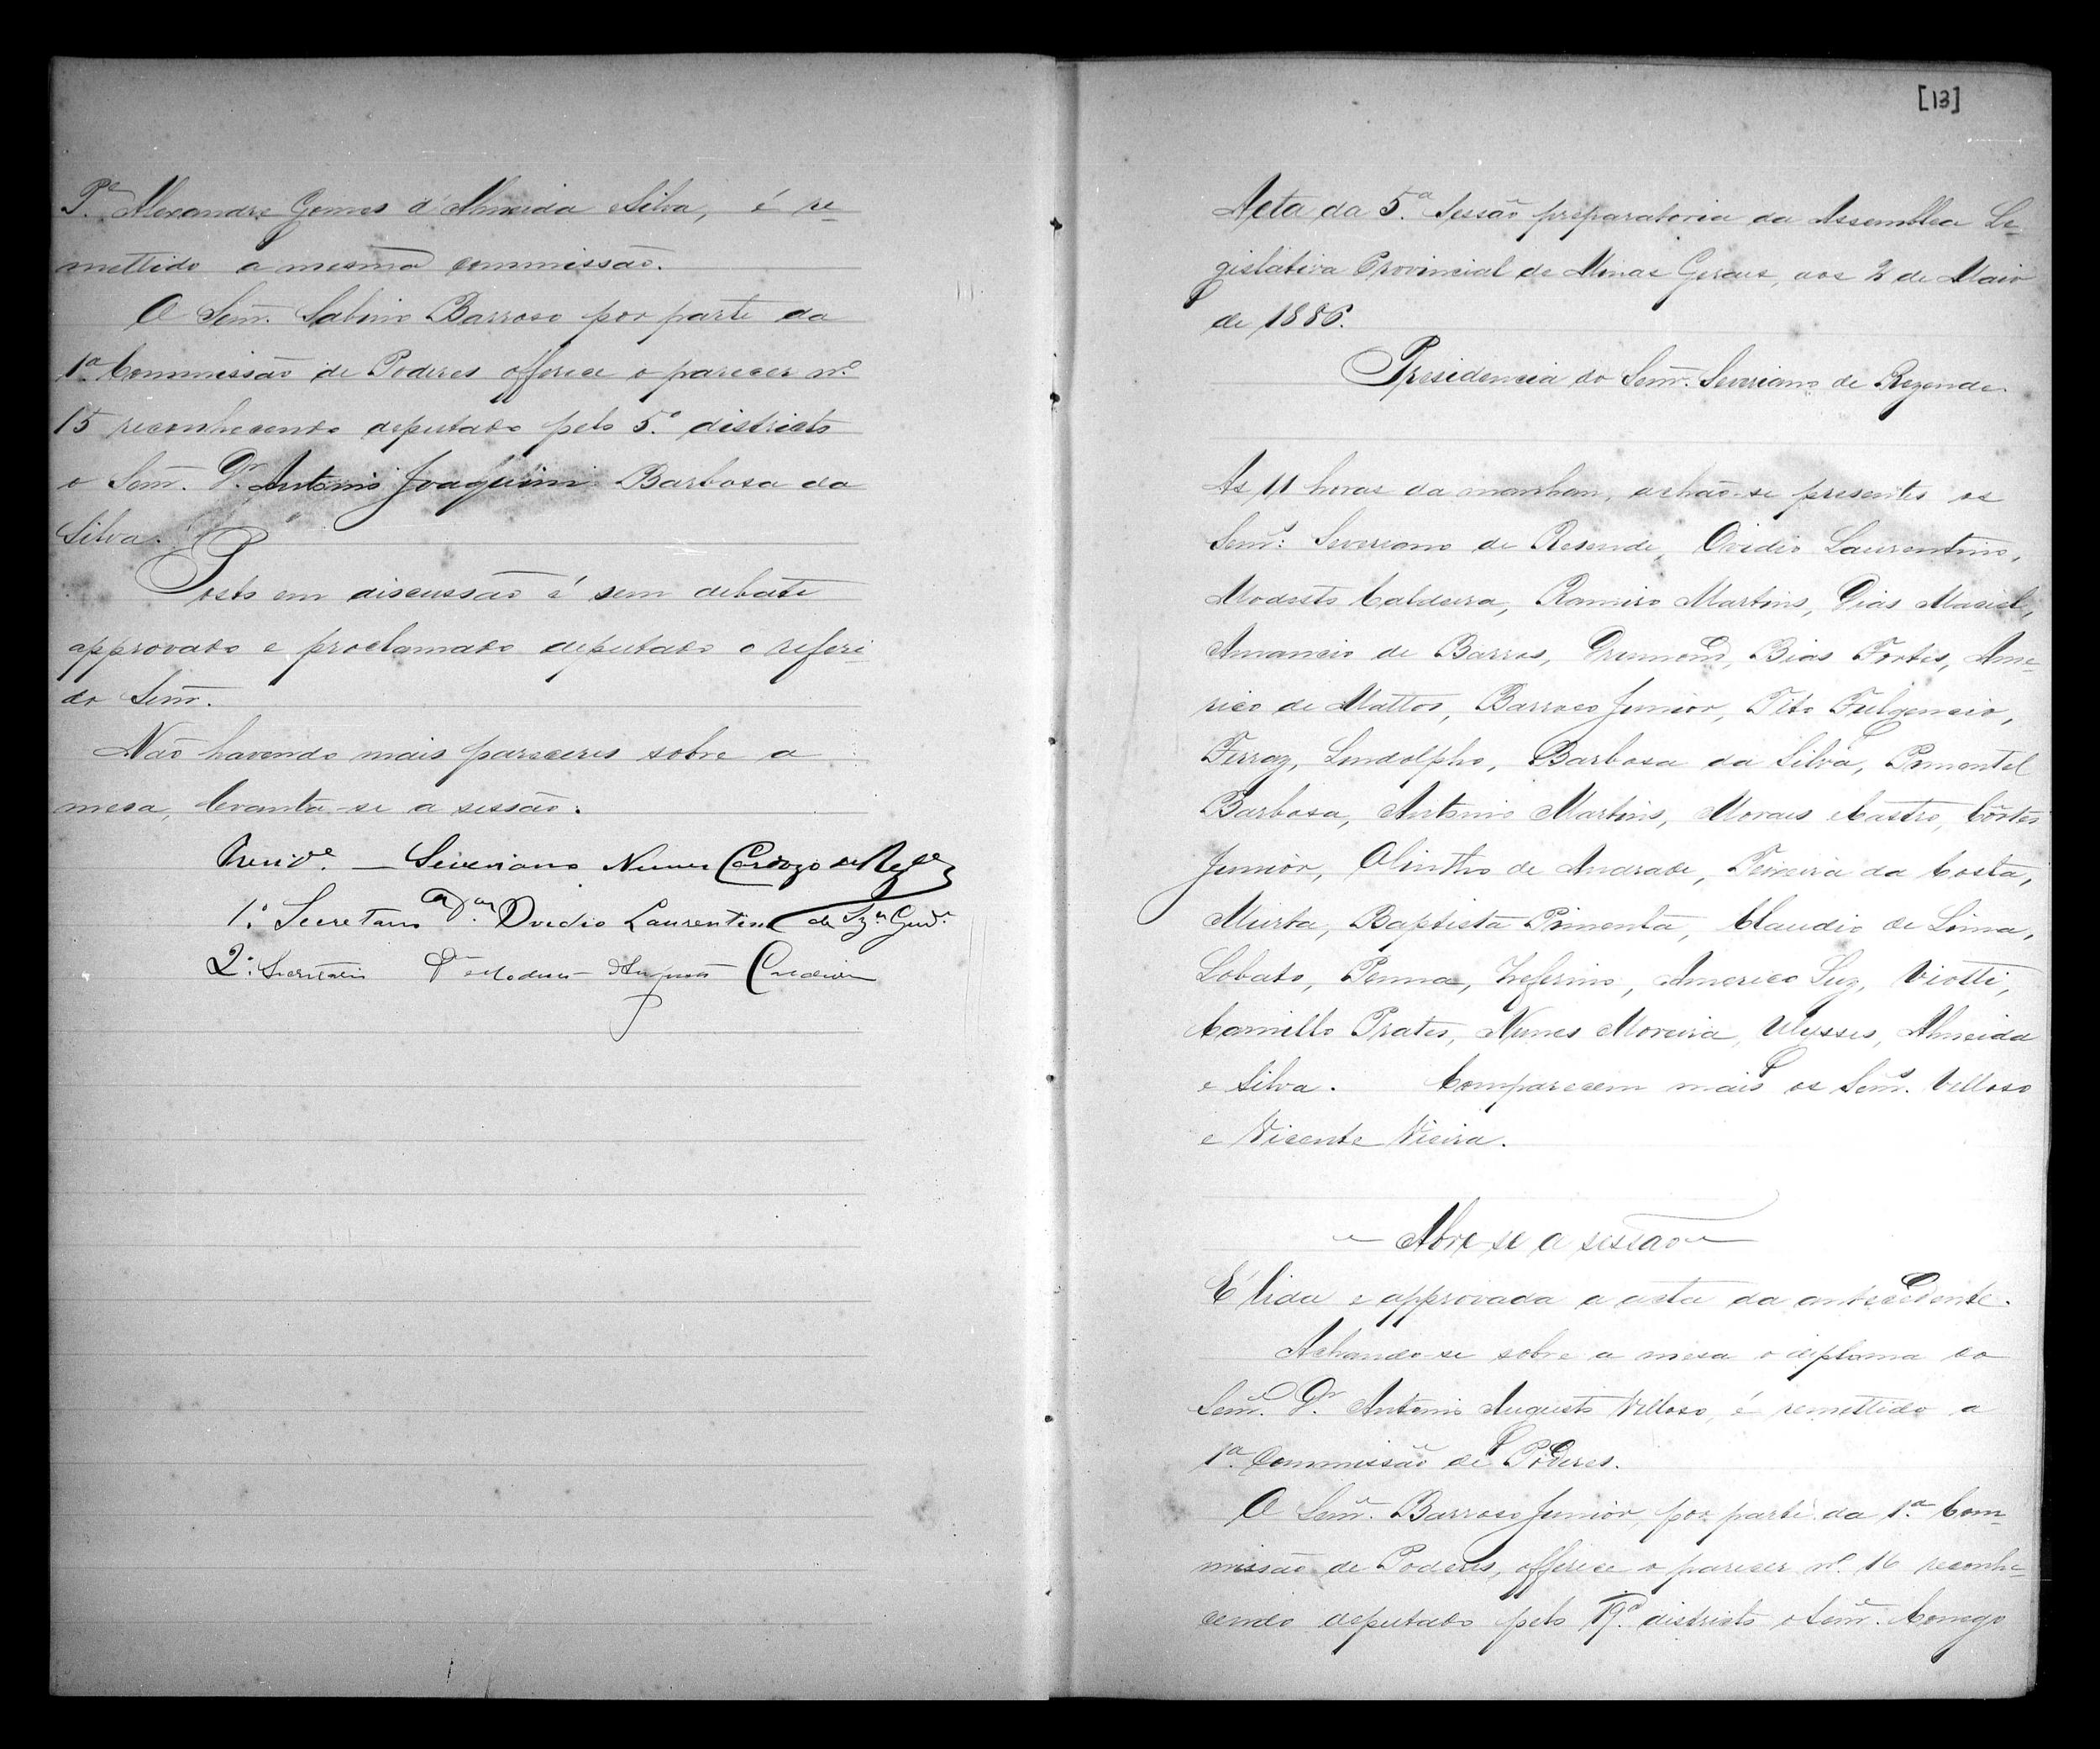 Pe. Alexandre Gomes d'Almeida Silva, é re-
mettido a mesma commissão.
O Senr. Sabino Barroso por parte da
1ª Commissão de Poderes offerece o parecer nº
15 reconhecendo deputado pelo 5º districto
o Senr. Dr. Antonio Joaquim Barbosa da
Silva.
Posto em discussão é sem debate
approvado e proclamado deputado o referi-
do Senr.
Não havendo mais pareceres sobre a
mesa, levanta-se a sessão.
Preside. — Severiano Nunes Cardozo de Rezde
1º Secretario Ovidio Laurentino de
2º Secretario Modesto Augusto Caldeira
[13]
Acta da 5ª Sessão preparatoria da Assemblea Le-
gislativa Provincial de Minas Geraes, aos 2 de Maio
de 1886.
Presidencia do Senr. Severiano de Rezende.
As 11 horas da manhan, achão-se presentes os
Senrs: Severiano de Resende, Ovidio Laurentino,
Modesto Caldeira, Ramiro Martins, Dias Maciel,
Amancio de Barros, Drumond, Bias Fortes, Ame-
rico de Mattos, Barroso Junior, Tito Fulgencio,
Ferraz, Lindolpho, Barbosa da Silva, Pimentel
Barbosa, Antonio Martins, Moraes e Castro, Côrtes
Junior, Olintho de Andrade, Teixeira da Costa,
Murta, Baptista Pimenta, Claudio de Lima,
Lobato, Penna, Zeferino, Americo Luz, Viotti,
Camillo Prates, Nunes Moreira, Ulysses, Almeida
e Silva. Comparecem mais os Senrs. Velloso
e Vicente Vieira.
— Abre-se a sessão —
É lida e approvada a acta da antecedente.
Achando-se sobre a mesa o diploma do
Senr. Dr. Antonio Augusto Velloso, é remettido a
1ª Commissão de Poderes.
O Senr. Barroso Junior, por parte da 1ª Com-
missão de Poderes, offerece o parecer nº 16 reconhe-
cendo deputado pelo 19º districto o Senr. Conego